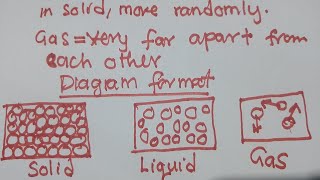 in solid, move randomly.
Gas=very far apart from
each other
Diagram format
Solid
Liquid
Gas